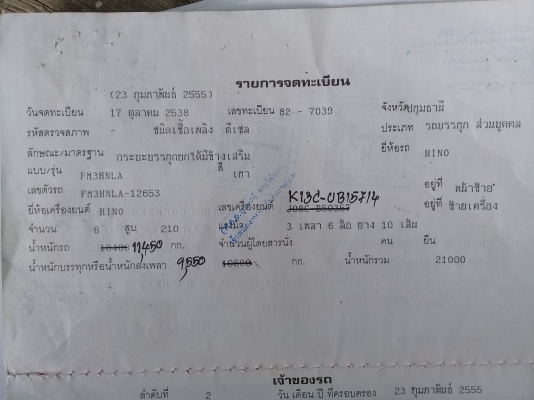 รายการจดทะเบียน
(23 กุมภาพันธ์ 2555)
วันจดทะเบียน 17 ตุลาคม 2538 เลขทะเบียน 82 - 7039 จังหวัดปทุมธานี
รหัสตรวจสภาพ - ชนิดเชื้อเพลิง ดีเซล ประเภท รถบรรทุก ส่วนบุคคล
ลักษณะ/มาตรฐาน กระบะบรรทุกยกได้มีข้างเสริม ยี่ห้อรถ HINO
แบบ/รุ่น FM3HNLA สี เทา
เลขตัวรถ FM3HNLA-12653 อยู่ที่ หน้าซ้าย
ยี่ห้อเครื่องยนต์ HINO เลขเครื่องยนต์ K13C-UB15714 อยู่ที่ ซ้ายเครื่อง
จำนวน 6 สูบ 210 แรงม้า 3 เพลา 6 ล้อ ยาง 10 เส้น
น้ำหนักรถ 10400 11,450 กก. จำนวนผู้โดยสารนั่ง คน ยืน
น้ำหนักบรรทุกหรือน้ำหนักลงเพลา 9,550 10600 กก. น้ำหนักรวม 21000
เจ้าของรถ
ลำดับที่ 2 วัน เดือน ปี ที่ครอบครอง 23 กุมภาพันธ์ 2555